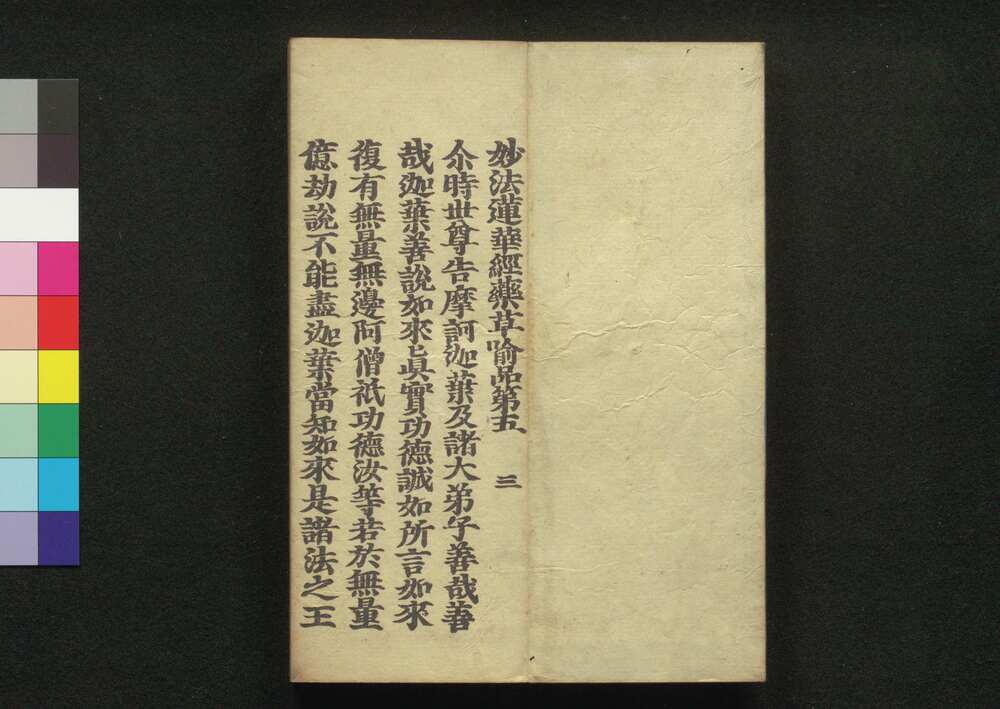 妙法蓮華經藥草喻品第五　三
尒時世尊告摩訶迦葉及諸大弟子善哉善
哉迦葉善說如來眞實功德誠如所言如來
復有無量無邊阿僧祇功德汝等若於無量
億劫說不能盡迦葉當知如來是諸法之王